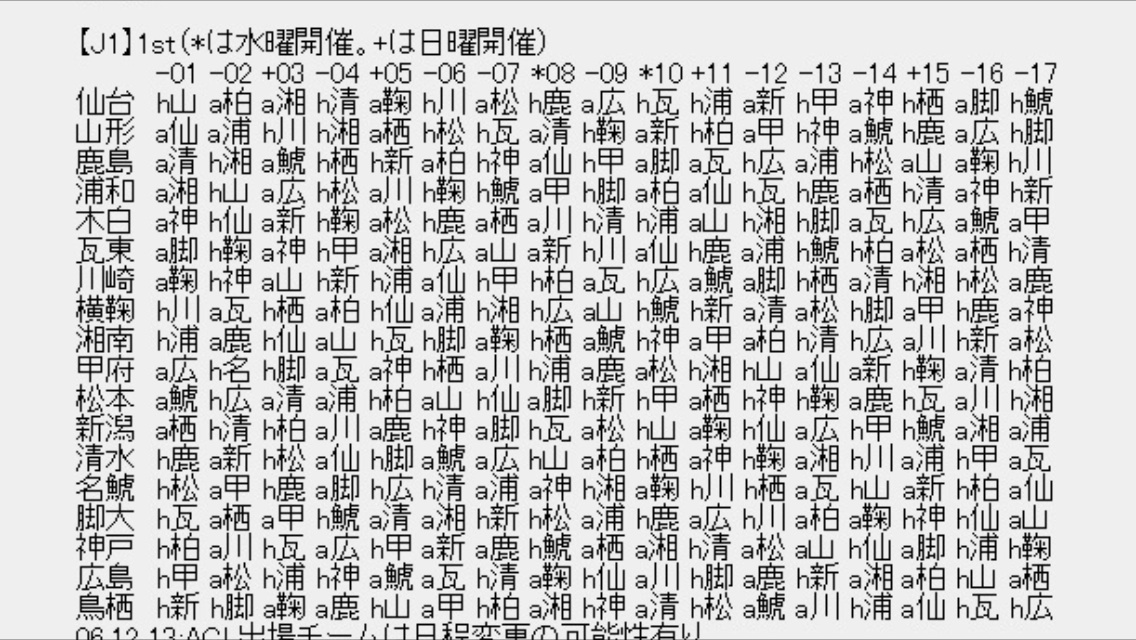 【J1】1st(*は水曜開催。+は日曜開催)
-01 -02 +03 -04 +05 -06 -07 *08 -09 *10 +11 -12 -13 -14 +15 -16 -17
仙台 h山 a柏 a湘 h清 a鞠 h川 a松 h鹿 a広 h瓦 h浦 a新 h甲 a神 h栖 a脚 h鯱
山形 a仙 a浦 h川 h湘 a栖 h松 h瓦 a清 h鞠 a新 h柏 a甲 h神 a鯱 h鹿 a広 h脚
鹿島 a清 h湘 a鯱 h栖 h新 a柏 h神 a仙 h甲 a脚 a瓦 h広 a浦 h松 a山 a鞠 h川
浦和 a湘 h山 a広 h松 a川 h鞠 h鯱 a甲 h脚 a柏 a仙 h瓦 h鹿 a栖 h清 a神 h新
木白 a神 h仙 a新 h鞠 a松 h鹿 a栖 a川 h清 h浦 a山 h湘 h脚 a瓦 h広 a鯱 a甲
瓦東 a脚 h鞠 a神 h甲 a湘 h広 a山 a新 h川 a仙 h鹿 a浦 h鯱 h柏 a松 a栖 h清
川崎 a鞠 h神 a山 h新 h浦 a仙 h甲 h柏 a瓦 h広 a鯱 a脚 h栖 a清 h湘 h松 a鹿
横鞠 h川 a瓦 h栖 a柏 h仙 a浦 h湘 h広 a山 h鯱 h新 a清 a松 h脚 a甲 h鹿 a神
湘南 h浦 a鹿 h仙 a山 h瓦 h脚 a鞠 h栖 a鯱 h神 a甲 a柏 h清 h広 a川 h新 a松
甲府 a広 h名 h脚 a瓦 a神 h栖 a川 h浦 a鹿 a松 h湘 h山 a仙 a新 h鞠 a清 h柏
松本 a鯱 h広 a清 a浦 h柏 a山 h仙 a脚 h新 h甲 a栖 h神 h鞠 a鹿 h瓦 a川 h湘
新潟 a栖 h清 h柏 a川 a鹿 h神 a脚 h瓦 a松 h山 a鞠 h仙 a広 h甲 h鯱 a湘 a浦
清水 h鹿 a新 h松 a仙 h脚 a鯱 a広 h山 a柏 h栖 a神 h鞠 a湘 h川 a浦 h甲 a瓦
名鯱 h松 a甲 h鹿 a脚 h広 h清 a浦 a神 h湘 a鞠 h川 h栖 a瓦 h山 a新 h柏 a仙
脚大 h瓦 a栖 a甲 h鯱 a清 a湘 h新 h松 a浦 h鹿 a広 h川 a柏 a鞠 h神 h仙 a山
神戸 h柏 a川 h瓦 a広 h甲 a新 a鹿 h鯱 a栖 a湘 h清 a松 a山 h仙 a脚 h浦 h鞠
広島 h甲 a松 h浦 h神 a鯱 a瓦 h清 a鞠 h仙 a川 h脚 a鹿 h新 a湘 a柏 h山 a栖
鳥栖 h新 h脚 a鞠 a鹿 h山 a甲 h柏 a湘 h神 a清 h松 a鯱 a川 h浦 a仙 h瓦 h広
06,12,13:ACL出場チームは日程変更の可能性有り